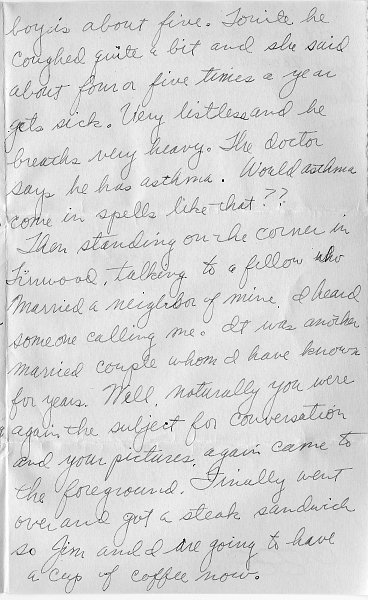 boy is about five. Tonite he
coughed quite a bit and she said
about four or five times a year
gets sick. Very listless and he
breaths very heavy. The doctor
says he has asthma. Would asthma
come in spells like that??
Then standing on the corner in
Linwood, talking to a fellow who
married a neighbor of mine, I heard
someone calling me. It was another
married couple whom I have known
for years. Well, naturally you were
again the subject for conversation
and your pictures, again came to
the foreground. Finally went
over and got a steak sandwich
so Jim and I are going to have
a cup of coffee now.